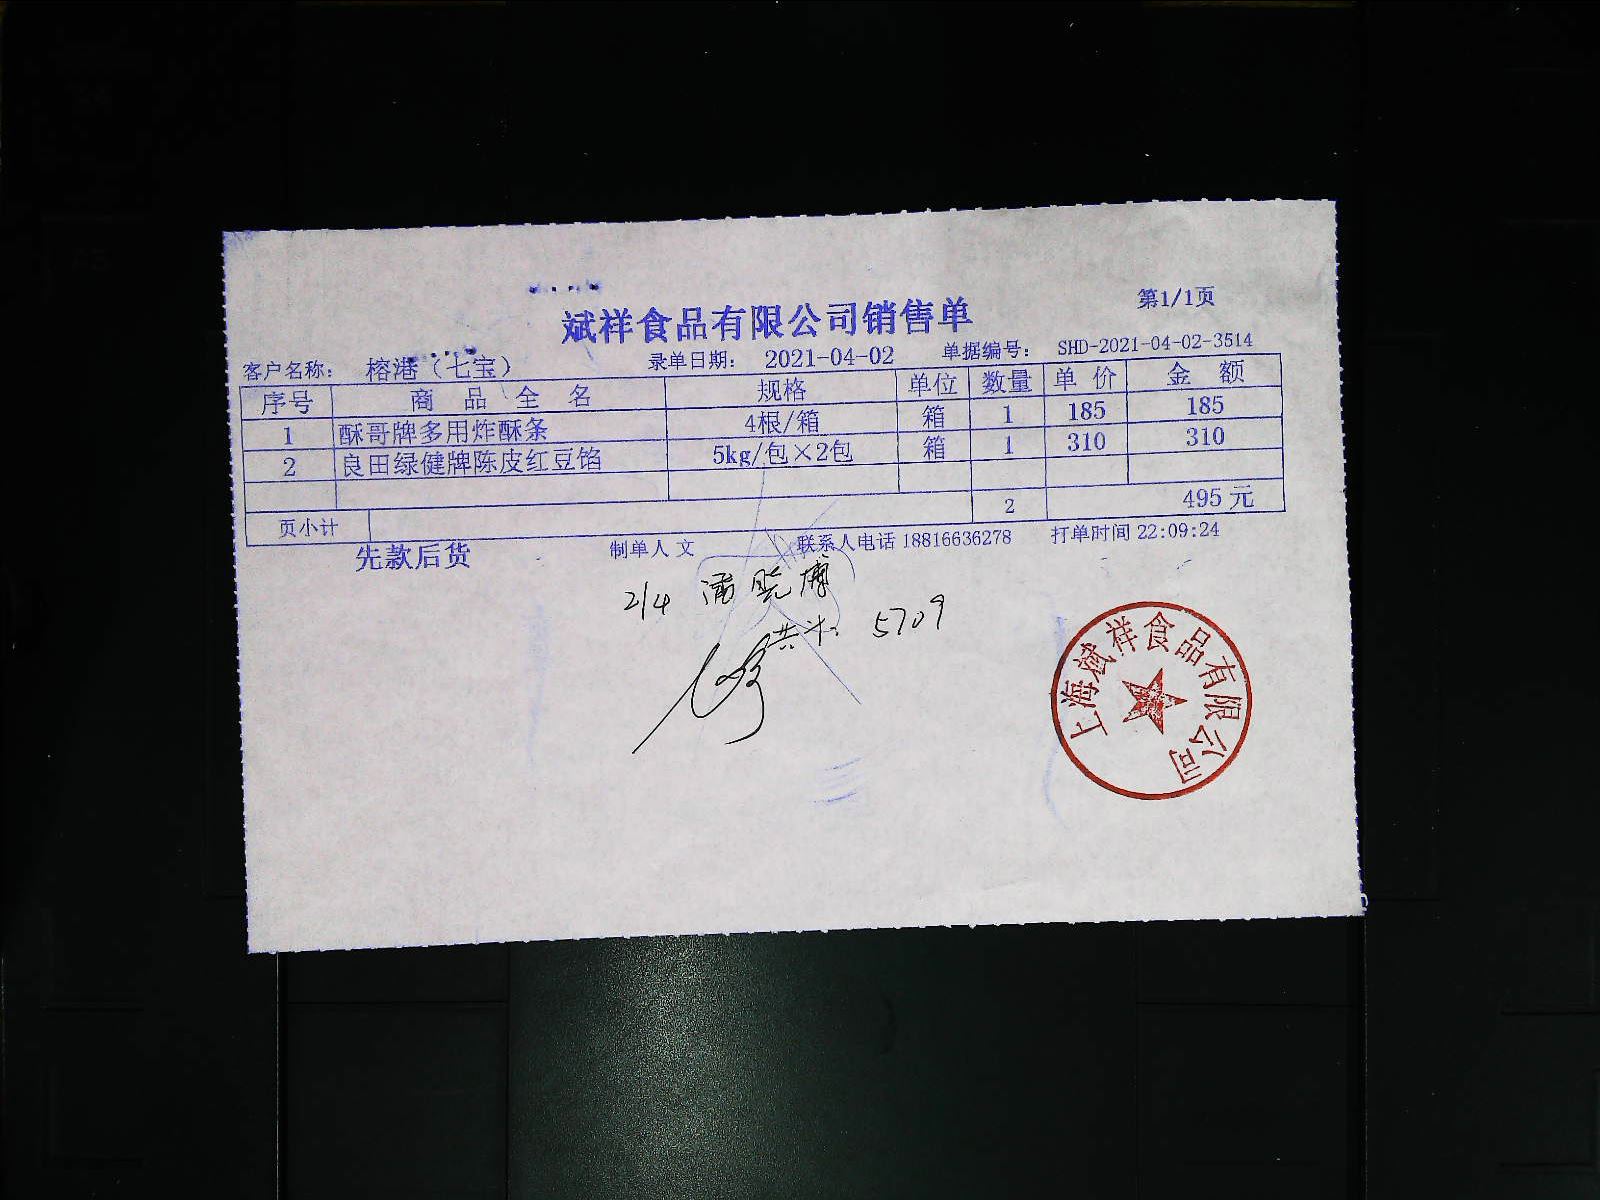 第1/1页
斌祥食品有限公司销售单
客户名称： 榕港（七宝） 录单日期： 2021-04-02 单据编号： SHD-2021-04-02-3514
序号 商品全名 规格 单位 数量 单价 金额
1 酥哥牌多用炸酥条 4根/箱 箱 1 185 185
2 良田绿健牌陈皮红豆馅 5kg/包×2包 箱 1 310 310
页小计 2 495 元
先款后货 制单人 文 联系人电话 18816636278 打单时间 22:09:24
2/4
5709
上海斌祥食品有限公司